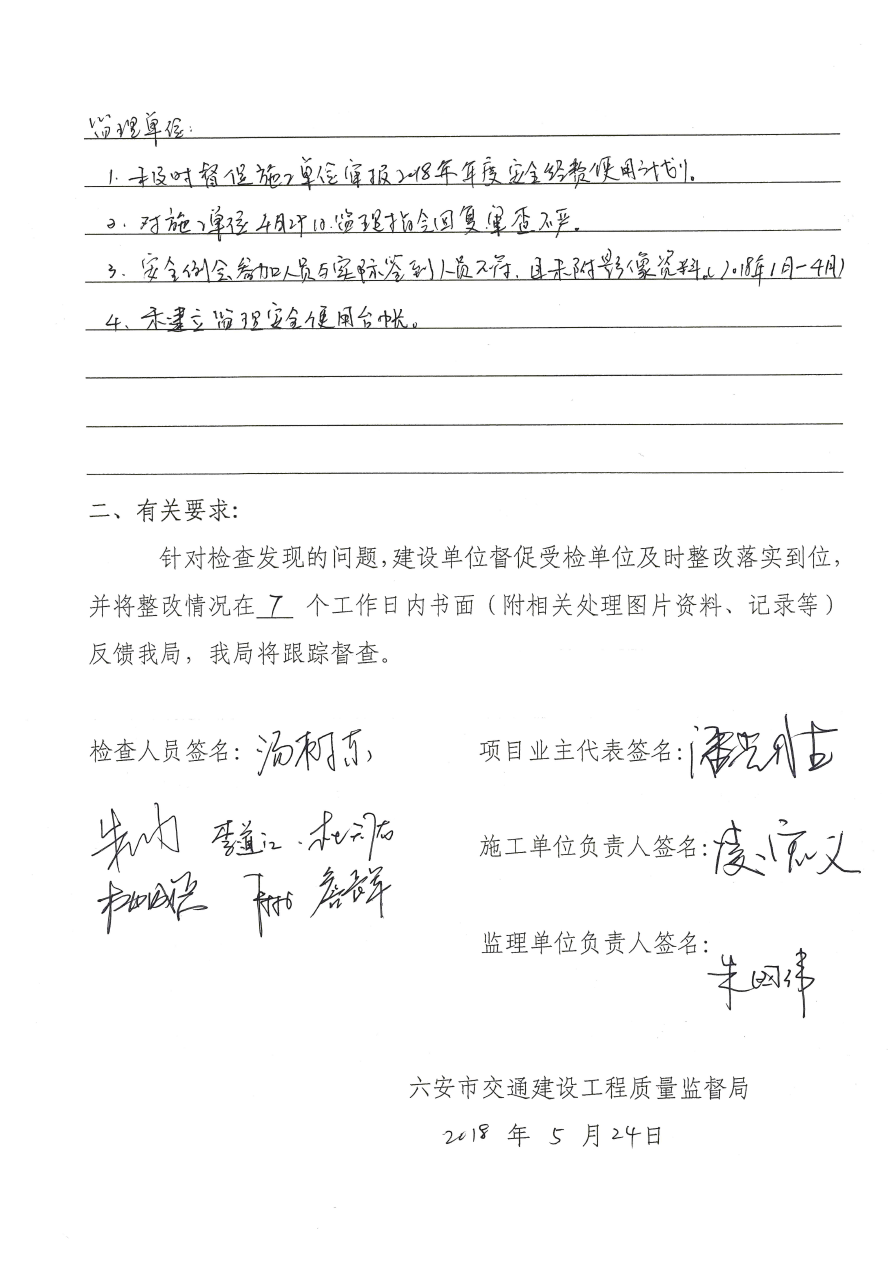 监理单位:
1. 未及时督促施工单位审报2018年年度安全经费使用计划。
2. 对施工单位4月2710.监理指令回复审查不严。
3. 安全例会参加人员与实际签到人员不符，且未附影像资料。(2018年1月-4月)
4、未建立监理安全使用台帐。
二、有关要求:
针对检查发现的问题,建设单位督促受检单位及时整改落实到位,
并将整改情况在 7 个工作日内书面（附相关处理图片资料、记录等）
反馈我局，我局将跟踪督查。
检查人员签名: 项目业主代表签名:
李道江
施工单位负责人签名:
监理单位负责人签名:
朱国伟
六安市交通建设工程质量监督局
2018 年 5 月 24日